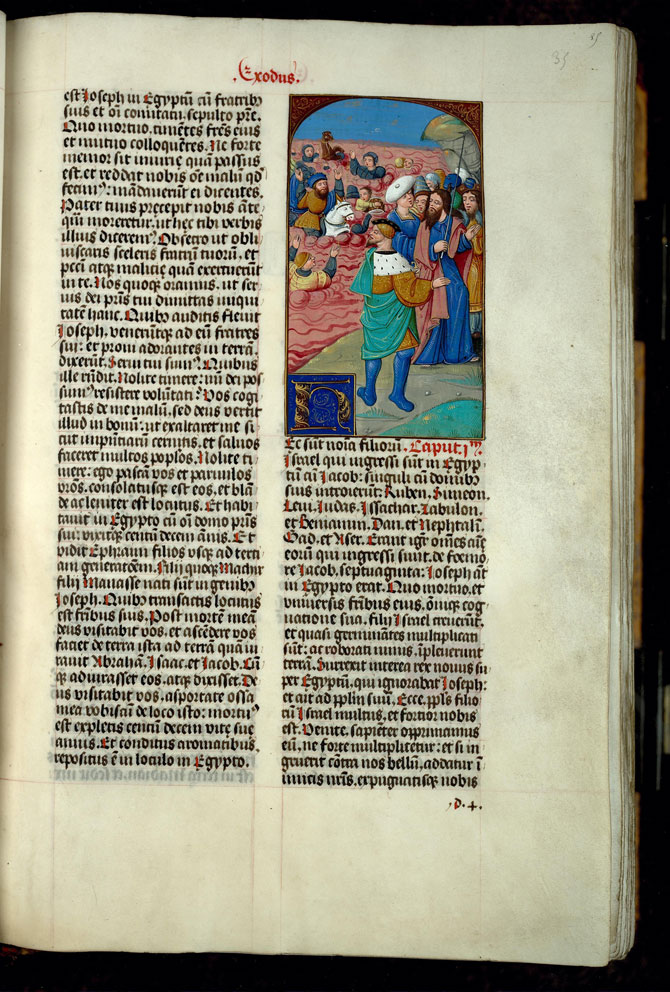 35
.Exodus.
est Joseph in Egyptũ cũ fratribꝫ
suis et oĩ comitatu, sepulto pr̃e.
Quo mortuo, timẽtes fr̃es eius
et mutuo colloquẽtes. Ne forte
memor sit iniurie quã passus
est, et reddat nobis oẽ malũ qđ
fecimꝰ: mãdauerũt ei dicentes.
Pater tuus precepit nobis ãte
qũ moreretur, ut hec tibi verbis
illius dicerem. Obsecro ut obli
uiscaris sceleris fratrũ tuorũ, et
pccĩ atqꝫ malicie quã exercuerũt
in te. Nos quoqꝫ oramus, ut ser
uis dei pr̃is tui dimittas iniqui
tatẽ hanc. Quibꝫ auditis fleuit
Joseph, venerũtqꝫ ad eũ fratres
sui: et proni adorantes in terrã,
dixerũt. Serui tui sumꝰ. Quibus
ille rñdit. Nolite timere: nũ dei pos
sumꝰ resistere volũtati? Vos cogi
tastis de me malũ, sed deus vertit
illud in bonũ: ut exaltaret me si
cut impñtiarũ cernitis, et saluos
faceret multos poplos. Nolite ti
mere: ego pascã vos et paruulos
vr̃os, consolatusqꝫ est eos, et blã
de ac leniter est locutus. Et habi
tauit in Egypto cũ oĩ domo pr̃is
sui: vixitqꝫ centũ decem ãnis. Et
vidit Ephraim filios vsqꝫ ad terti
am generatõem. Filij quoqꝫ Machir
filij Manasse nati sunt in genibꝫ
Joseph. Quibꝫ transactis locutus
est fribus suis. Post mortẽ meã
deus visitabit vos, et ascẽdere vos
faciet de terra ista ad terrã quã iu
rauit Abrahã, Isaac, et Jacob. Cũ
qꝫ adiurasset eos, atqꝫ dixisset. De
us visitabit vos, asportate ossa
mea vobiscũ de loco isto: mortuꝰ
est expletis centũ decem vite sue
annis. Et conditus aromatibus,
repositus ẽ in loculo in Egypto.
H
Ec sũt noĩa filiorũ. Caput. jᵐ.
Israel qui ingressi sũt in Egyp
tũ cũ Jacob: singuli cũ domibꝫ
suis introierũt: Ruben, Simeon,
Leui, Judas, Issachar, Zabulon,
et Beniamin, Dan, et Nephtalĩ,
Gad, et Aser. Erant igr̃ omẽs aĩe
eorũ qui ingressi sunt, de foemo
re Jacob, septuaginta: Joseph aũt
in Egypto erat. Quo mortuo, et
vniuersis fribus eius, õniqꝫ cog
natione sua, filij Israel creuerũt,
et quasi germinãtes multiplicati
sunt: ac roborati nimis, ĩpleuerunt
terrã. Surrexit interea rex nouus su
per Egyptũ, qui ignorabat Joseph:
et ait ad pplm suũ. Ecce, ppl̃s filio
rũ Israel multus, et fortior nobis
est. Venite, sapiẽter opprimamus
eũ, ne forte multiplicetur: et si in
gruerit cõtra nos bellũ, addatur ĩ
imicis nr̃is, expugnatisqꝫ nobis
.D.+.